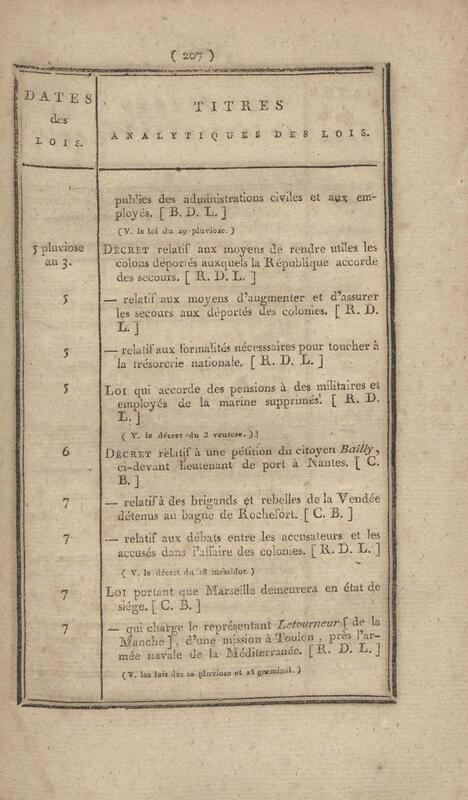 ( 207 )
DATES
des
LOIS.
TITRES
ANALYTIQUES DES LOIS.
publics des administrations civiles et aux em-
ployés. [ B. D. L. ]
(V. la loi du 29 pluviose.)
5 pluviose
au 3.
DÉCRET relatif aux moyens de rendre utiles les
colons déportés auxquels la République accorde
des secours. [ R. D. L. ]
5
— relatif aux moyens d'augmenter et d'assurer
les secours aux déportés des colonies. [ R. D.
L. ]
5
— relatif aux formalités nécesssaires pour toucher à
la trésorerie nationale. [ R. D. L. ]
5
LOI qui accorde des pensions à des militaires et
employés de la marine supprimés. [ R. D.
L. ]
( V. le décret du 3 ventose. )]
6
DÉCRET relatif à une pétition du citoyen Bailly,
ci-devant lieutenant de port à Nantes. [ C.
B. ]
7
— relatif à des brigands et rebelles de la Vendée
détenus au bagne de Rochefort. [ C. B. ]
7
— relatif aux débats entre les accusateurs et les
accusés dans l'affaire des colonies. [ R. D. L. ]
( V. le décret du 18 messidor. )
7
LOI portant que Marseille demeurera en état de
siége. [ C. B. ]
7
— qui charge le représentant Letourneur [ de la
Manche ], d'une mission à Toulon, près l'ar-
mée navale de la Méditerranée. [ R. D. L. ]
( V. les lois des 10 pluviose et 25 germinal. )